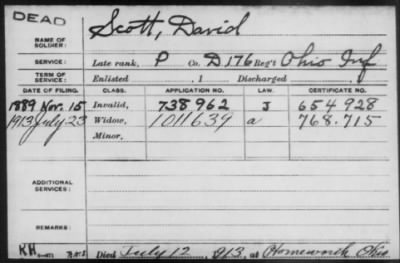 DEAD
NAME OF SOLDIER: Scott, David
SERVICE: Late rank, P Co. D 176 Reg't Ohio Inf
TERM OF SERVICE: Enlisted , 1 Discharged , 1
DATE OF FILING. CLASS. APPLICATION NO. LAW. CERTIFICATE NO.
1889 Nov. 15 Invalid, 738962 J 654928
1913 July 23 Widow, 1011639 a 768.715
Minor,
ADDITIONAL SERVICES:
REMARKS:
Died July 12, 1913, at Homeworth Ohio